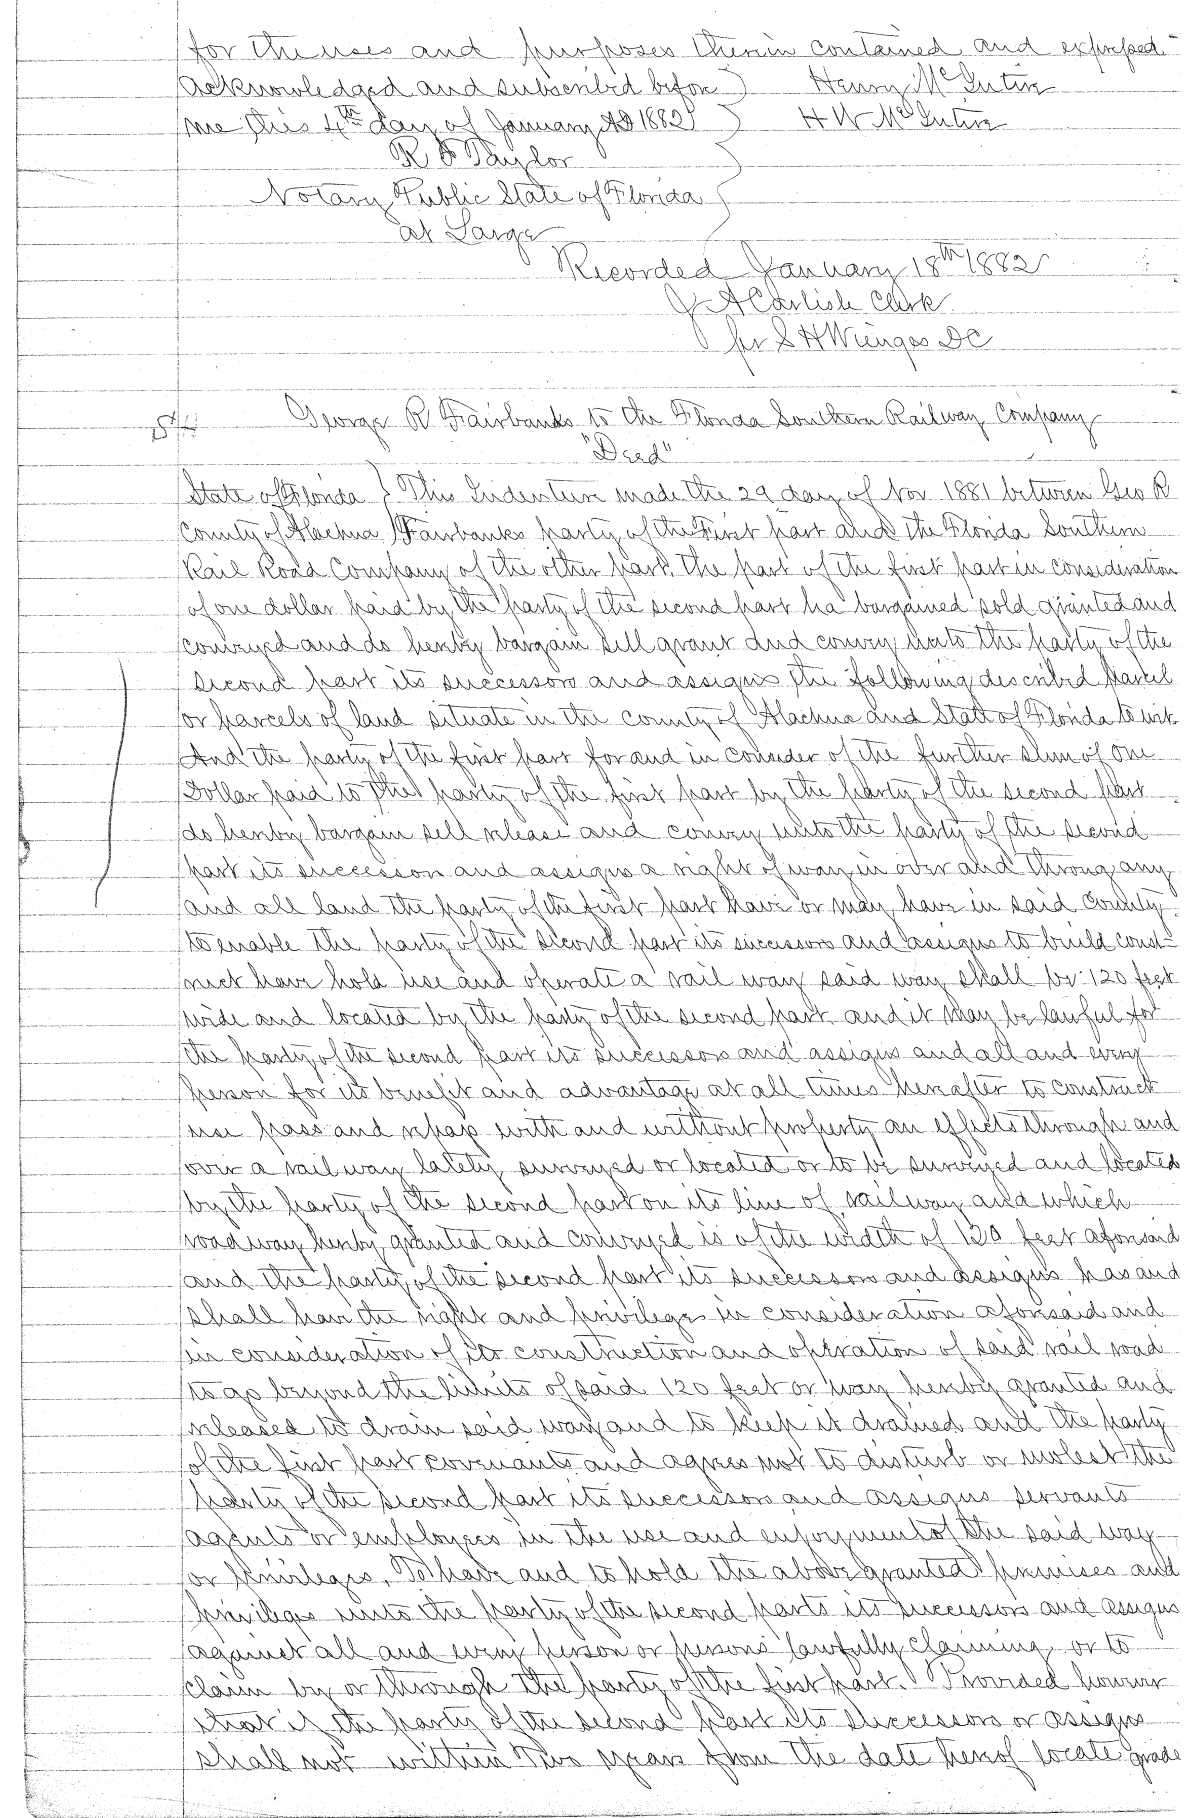 for the uses and purposes therein contained and expressed
Acknowledged and subscribed before } Henry McIntire
me this 4th day of January AD 1882 } H W McIntire
R F Taylor
Notary Public State of Florida
at Large
Recorded January 18th 1882
J A Carlisle Clerk
per S H Wienges DC
George R Fairbanks to the Florida Southern Railway Company
"Deed"
State of Florida } This Indenture made the 29 day of Nov 1881 between Geo R
County of Alachua } Fairbanks party of the First part and the Florida Southern
Rail Road Company of the other part. The part of the first part in consideration
of one dollar paid by the party of the second part ha bargained sold granted and
conveyed and do hereby bargain sell grant and convey unto the party of the
second part its successors and assigns the following described Parcel
or parcels of land situate in the county of Alachua and State of Florida to wit
And the party of the first part for and in consider of the further sum of One
Dollar paid to the party of the first part by the party of the second part
do hereby bargain sell release and convey unto the party of the second
part its successors and assigns a right of way in over and throug any
and all land the party of the first part have or may have in said County
to enable the party of the second part its successors and assigns to build const-
ruct have hold use and operate a rail way said way shall be 120 feet
wide and located by the party of the second part and it may be lawful for
the party of the second part its successors and assigns and all and every
person for its benefit and advantage at all times hereafter to construct
use pass and repass with and without property an effects through and
over a rail way lately surveyed or located or to be surveyed and located
by the party of the second part on its line of railway and which
road way hereby granted and conveyed is of the width of 120 feet aforesaid
and the party of the second part its successors and assigns has and
shall have the right and privilege in consideration aforesaid and
in consideration of its construction and operation of said rail road
to go beyond the limits of said 120 feet or way hereby granted and
released to drain said way and to keep it drained and the party
of the first part covenants and agrees not to disturb or molest the
party of the second part its successors and assigns servants
agents or employees in the use and enjoyment of the said way
or privileges. To have and to hold the above granted premises and
privileges unto the party of the second parts its successors and assigns
against all and every person or persons lawfully claiming or to
claim by or through the party of the first part. Provided however
that if the party of the second part its successors or assigns
shall not within Two years from the date hereof locate grade